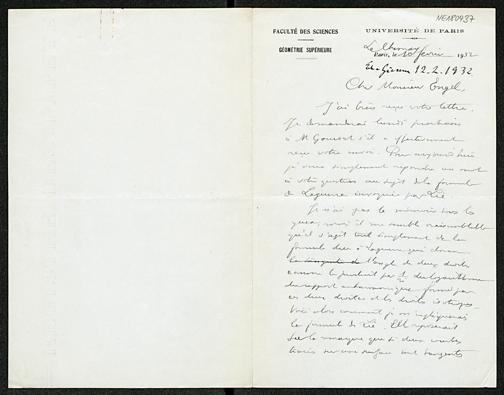 NE180937
FACULTÉ DES SCIENCES
GÉOMÉTRIE SUPÉRIEURE
UNIVERSITÉ DE PARIS
Le Chesnay
Paris, le 10 février 1932
12.2.1932
Cher Monsieur Engel,
J'ai bien reçu votre lettre.
Je demanderai lundi prochain
à M Goursat s'il a effectivement
reçu votre envoi. Pour aujourd'hui
je veux simplement répondre un mot
à votre question au sujet de la formule
de Laguerre invoquée par Lie.
Je n'ai pas le mémoire sous les
yeux, mais il me semble vraisemblable
qu'il s'agit tout simplement de la
formule due à Laguerre qui donne
l'angle de deux droites
comme le produit par du logarithme
du rapport anharmonique formé par
ces deux droites et les droites isotropes.
Voici alors comment j'expliquerais
la formule de Lie. Elle reposerait
sur la remarque que si deux courbes
tracées sur une surface sont tangentes